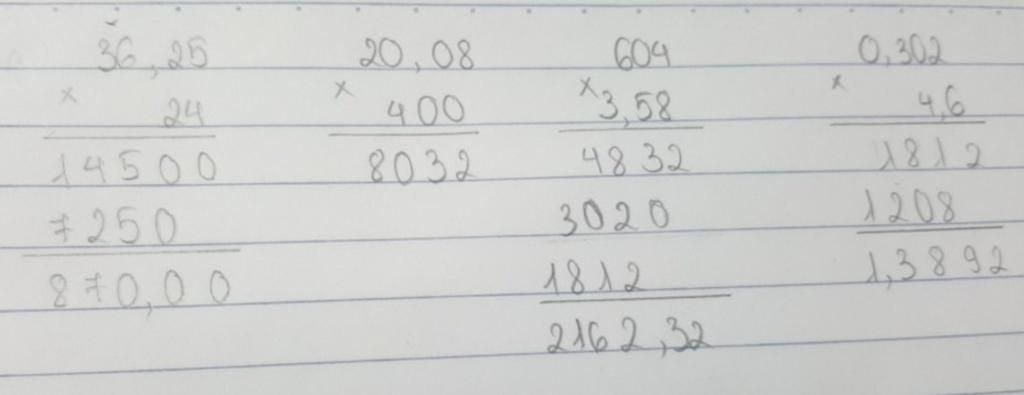 36,25 20,08 604 0,302
× 24 × 400 × 3,58 × 4,6
14500 8032 4832 1812
7250 3020 1208
870,00 1812 1,3892
2162,32